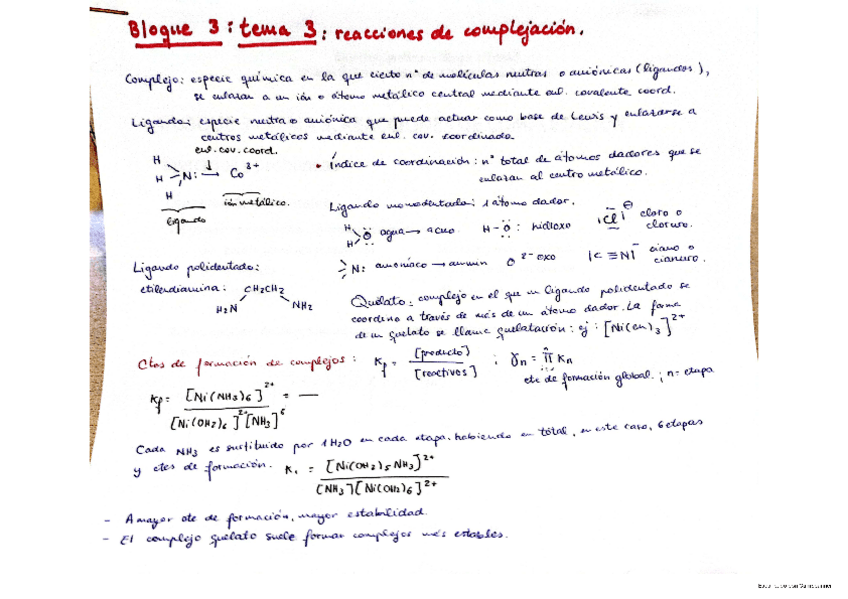 Bloque 3: tema 3: reacciones de complejación.
Complejo: especie química en la que cierto nº de moléculas neutras o aniónicas (ligandos),
se enlazan a un ión o átomo metálico central mediante enl. covalente coord.
Ligando: especie neutra o aniónica que puede actuar como base de Lewis y enlazarse a
centros metálicos mediante enl. cov. coordinado.
enl. cov. coord.
H
H > N: → Co 3+
H
ligando
ión metálico.
• Índice de coordinación: nº total de átomos dadores que se
enlazan al centro metálico.
Ligando monodentado: 1 átomo dador.
H H O agua → acuo H-O: hidroxo |Cl|⊖ cloro o
cloruro.
N: amoníaco → ammin O 2- oxo |C≡N|⁻ ciano o
cianuro.
Ligando polidentado:
etilendiamina: CH2CH2
H2N NH2
Quelato: complejo en el que un ligando polidentado se
coordina a través de más de un átomo dador. La forma
de un quelato se llama quelatación: ej: [Ni(en)3]2+
Ctes de formación de complejos: Kf = [producto] / [reactivos] ; γn = π Kn
cte de formación global. ; n = etapa
Kf = [Ni(NH3)6]2+ / [Ni(OH2)6]2+[NH3]6 = —
Cada NH3 es sustituido por 1 H2O en cada etapa. habiendo en total, en este caso, 6 etapas
y ctes de formación. K1 = [Ni(OH2)5NH3]2+ / [NH3][Ni(OH2)6]2+
- A mayor cte de formación, mayor estabilidad.
- El complejo quelato suele formar complejos más estables.